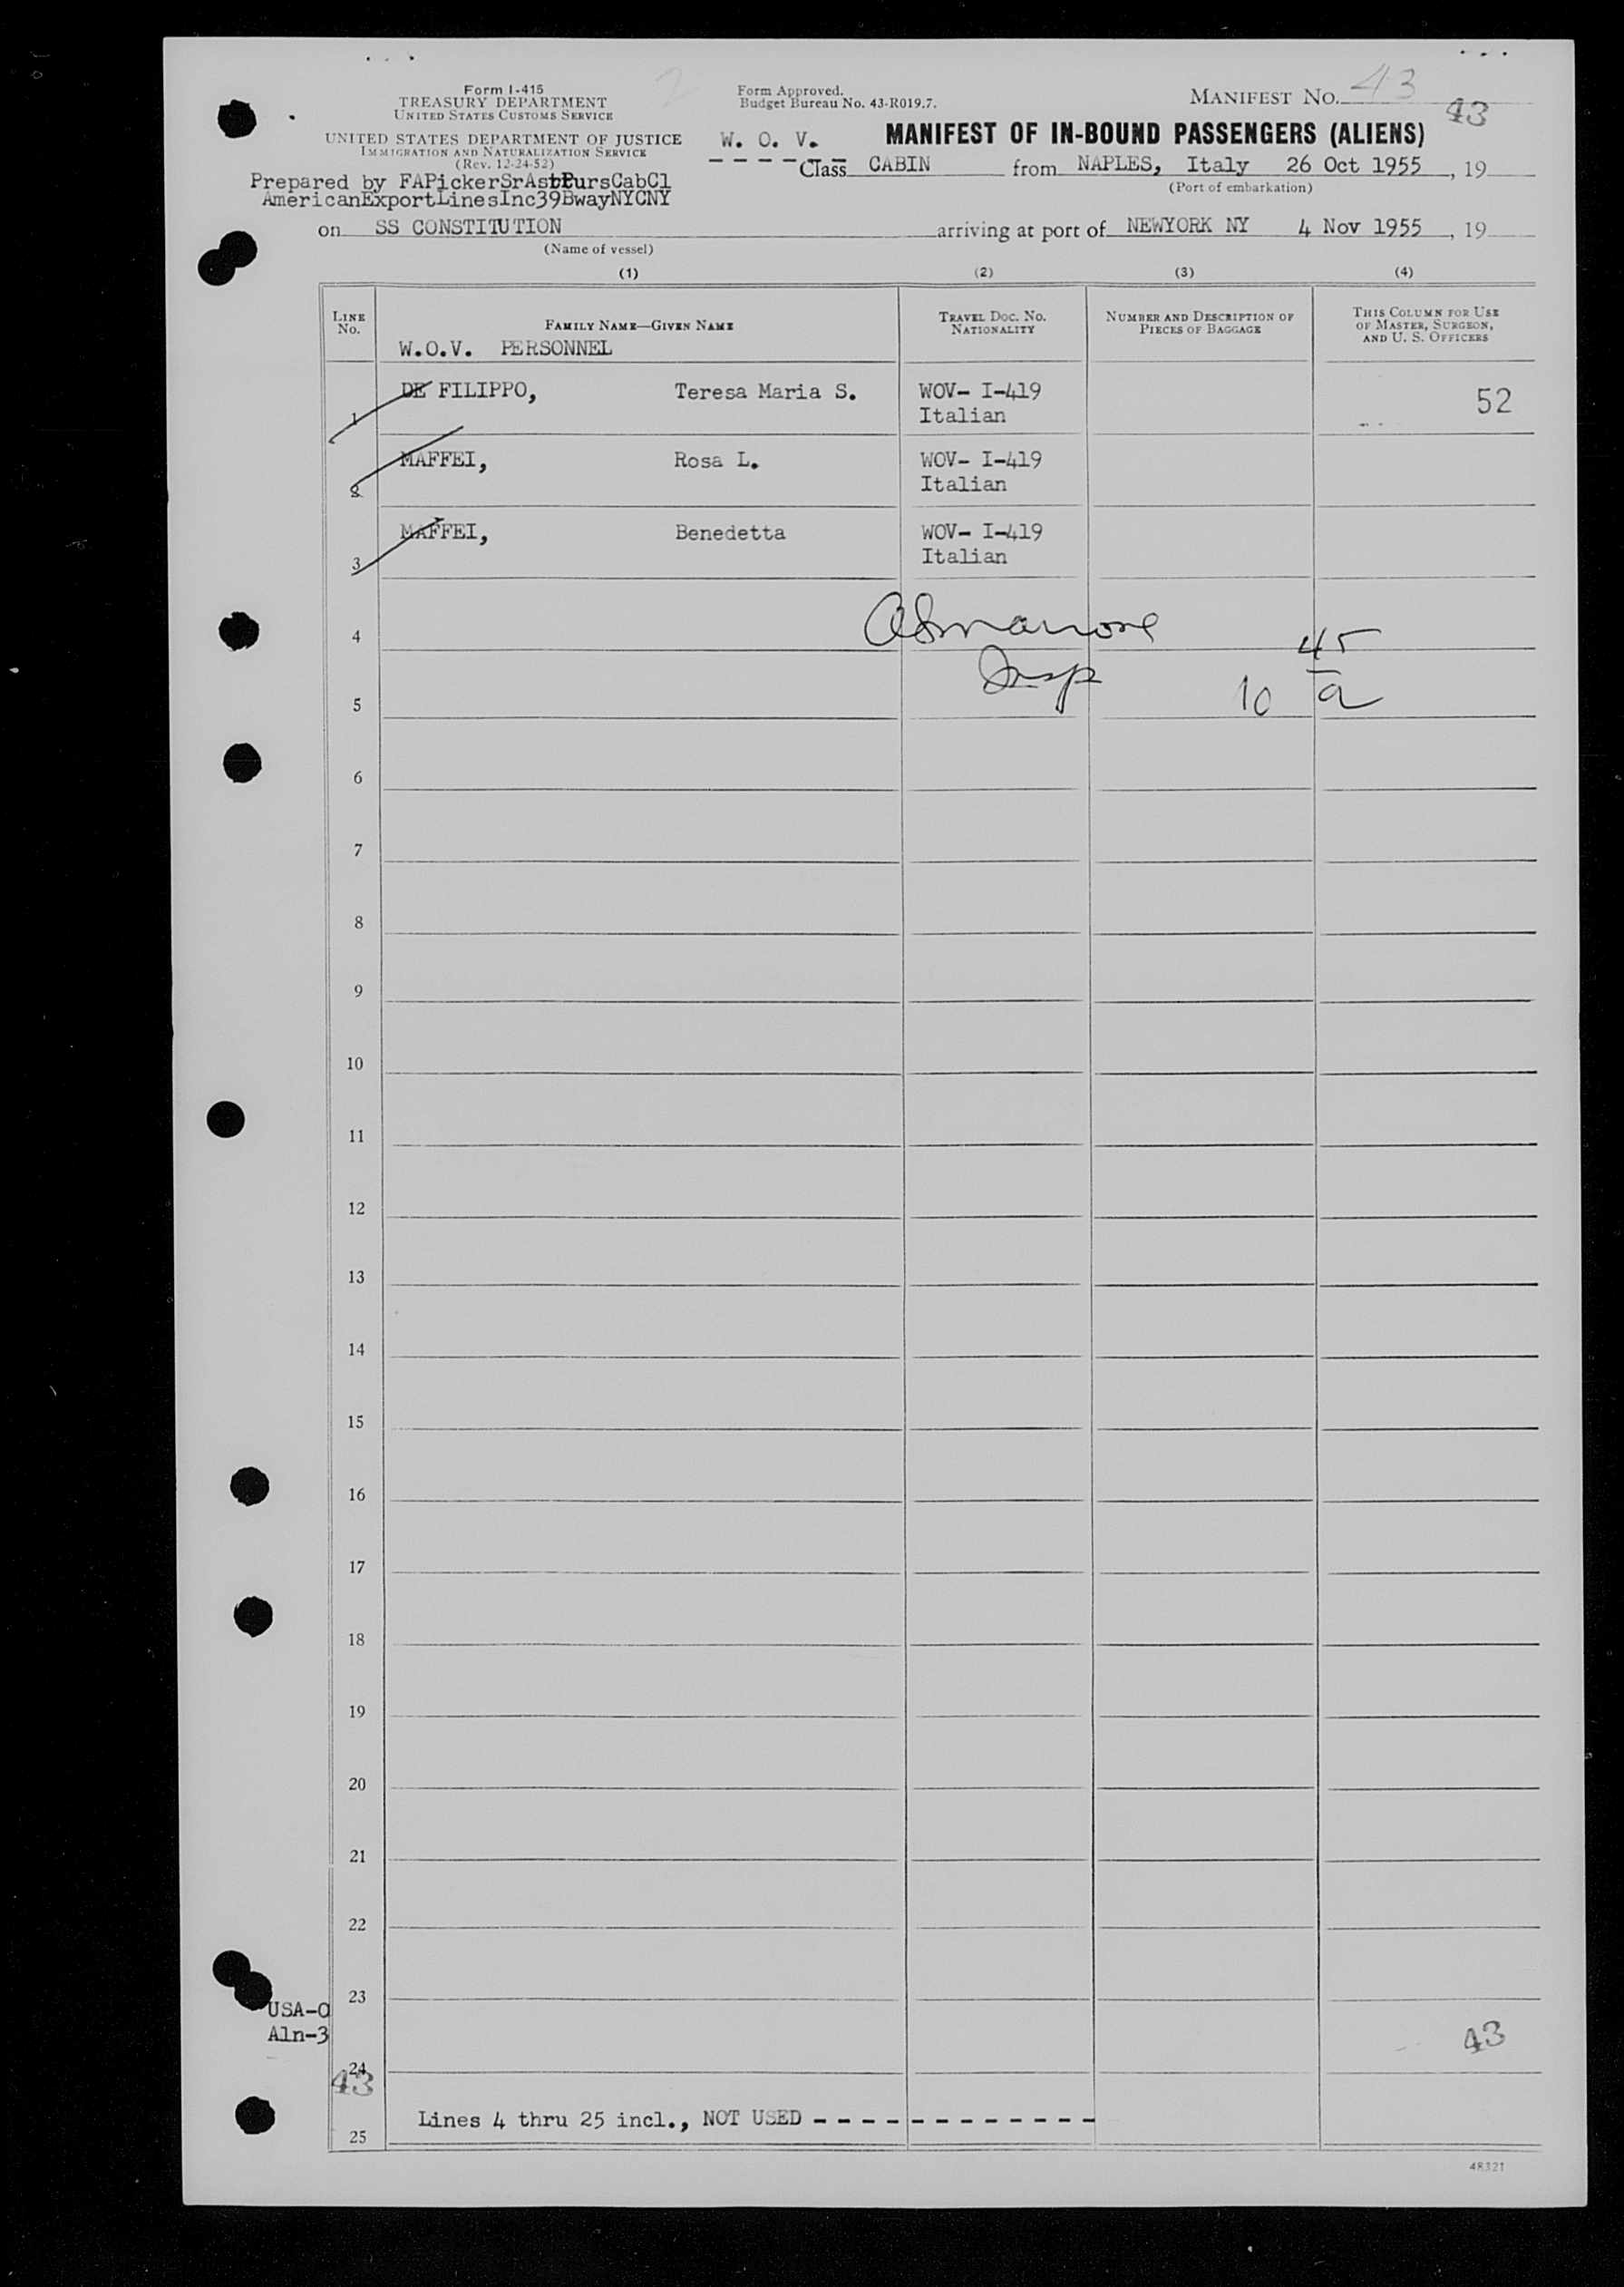 Form I-415
TREASURY DEPARTMENT
UNITED STATES CUSTOMS SERVICE
UNITED STATES DEPARTMENT OF JUSTICE
IMMIGRATION AND NATURALIZATION SERVICE
(Rev. 12-24-52)
Prepared by FAPickerSrAstPursCabCl
AmericanExportLinesInc39BwayNYCNY
2
Form Approved.
Budget Bureau No. 43-R019.7.
MANIFEST NO. 43
43
W. O. V. MANIFEST OF IN-BOUND PASSENGERS (ALIENS)
Class CABIN from NAPLES, Italy 26 Oct 1955, 19
(Port of embarkation)
on SS CONSTITUTION arriving at port of NEWYORK NY 4 Nov 1955, 19
(Name of vessel)
(1) (2) (3) (4)
LINE NO. FAMILY NAME—GIVEN NAME TRAVEL DOC. NO. NATIONALITY NUMBER AND DESCRIPTION OF PIECES OF BAGGAGE THIS COLUMN FOR USE OF MASTER, SURGEON, AND U. S. OFFICERS
W.O.V. PERSONNEL
1 DE FILIPPO, Teresa Maria S. WOV- I-419 52
Italian
2 MAFFEI, Rosa L. WOV- I-419
Italian
3 MAFFEI, Benedetta WOV- I-419
Italian
4 45
5 Insp 10 a
6
7
8
9
10
11
12
13
14
15
16
17
18
19
20
21
22
23
USA-0
Aln-3
43
24
43
Lines 4 thru 25 incl., NOT USED - - - - - - - - - - - - -
25
48321